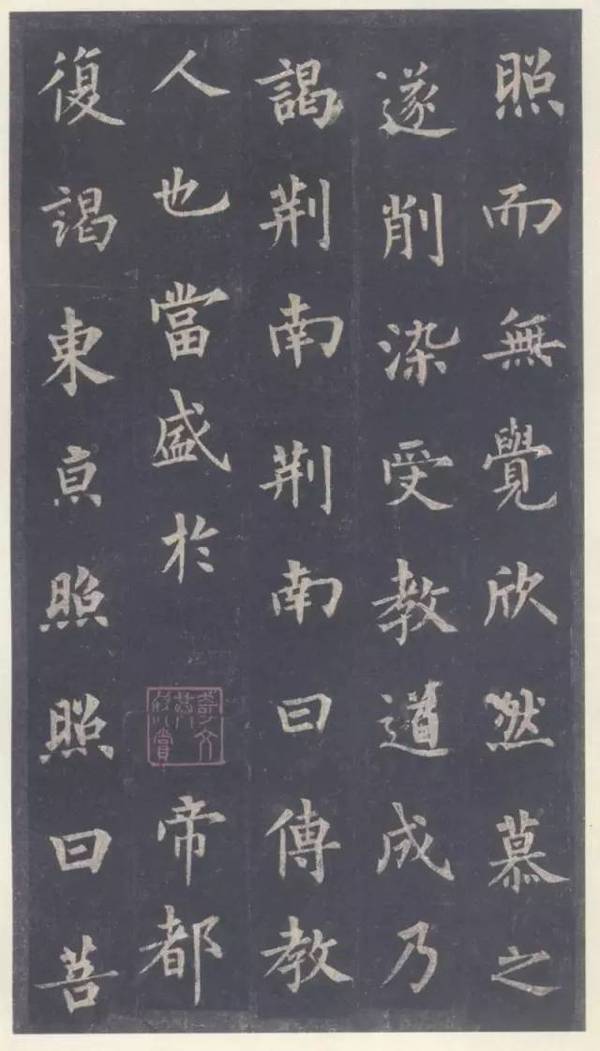 照而無覺欣然慕之
遂削染受教道成乃
謁荆南荆南曰傳教
人也當盛於帝都
復謁東亰照照曰菩